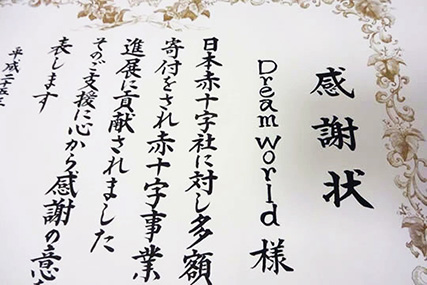 感謝状
Dream World 様
日本赤十字社に対し多額
寄付をされ赤十字事業
進展に貢献されました
そのご支援に心から感謝の意を
表します
平成二十五年